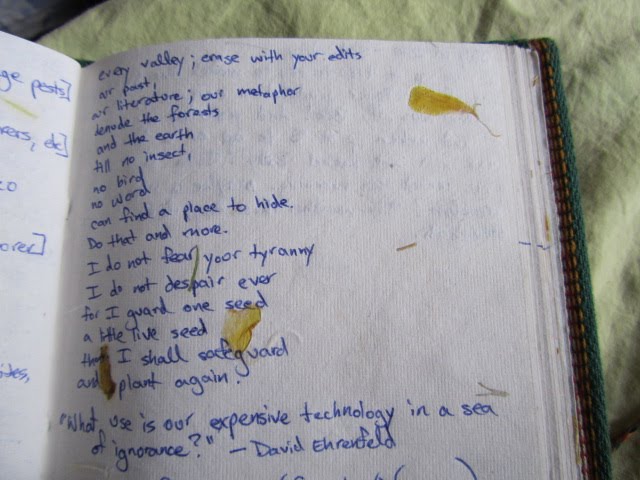 ge pests]
reas, etc]
co
orer]
ides,
every valley; erase with your edits
our past,
our literature; our metaphor
denude the forests
and the earth
till no insect,
no bird
no word
can find a place to hide.
Do that and more.
I do not fear your tyranny
I do not despair ever
for I guard one seed
a little live seed
that I shall safeguard
and plant again.
"What use is our expensive technology in a sea
of ignorance?" — David Ehrenfeld